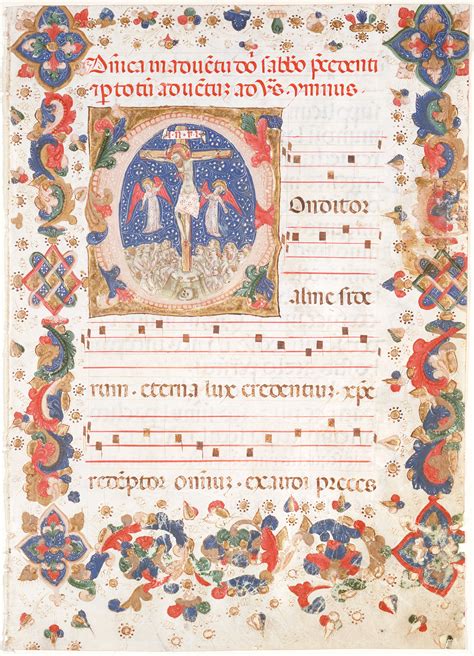 Dn̄ica in aduētu dn̄i sabbo p̄cedenti
ip̄totū aduētuꝫ ad vꝭ. ymnus
I·N·R·I
Onditor
alme side
rum · eterna lux credentiuꝫ · xp̄e
redēptor omniuꝫ · exaudi preces